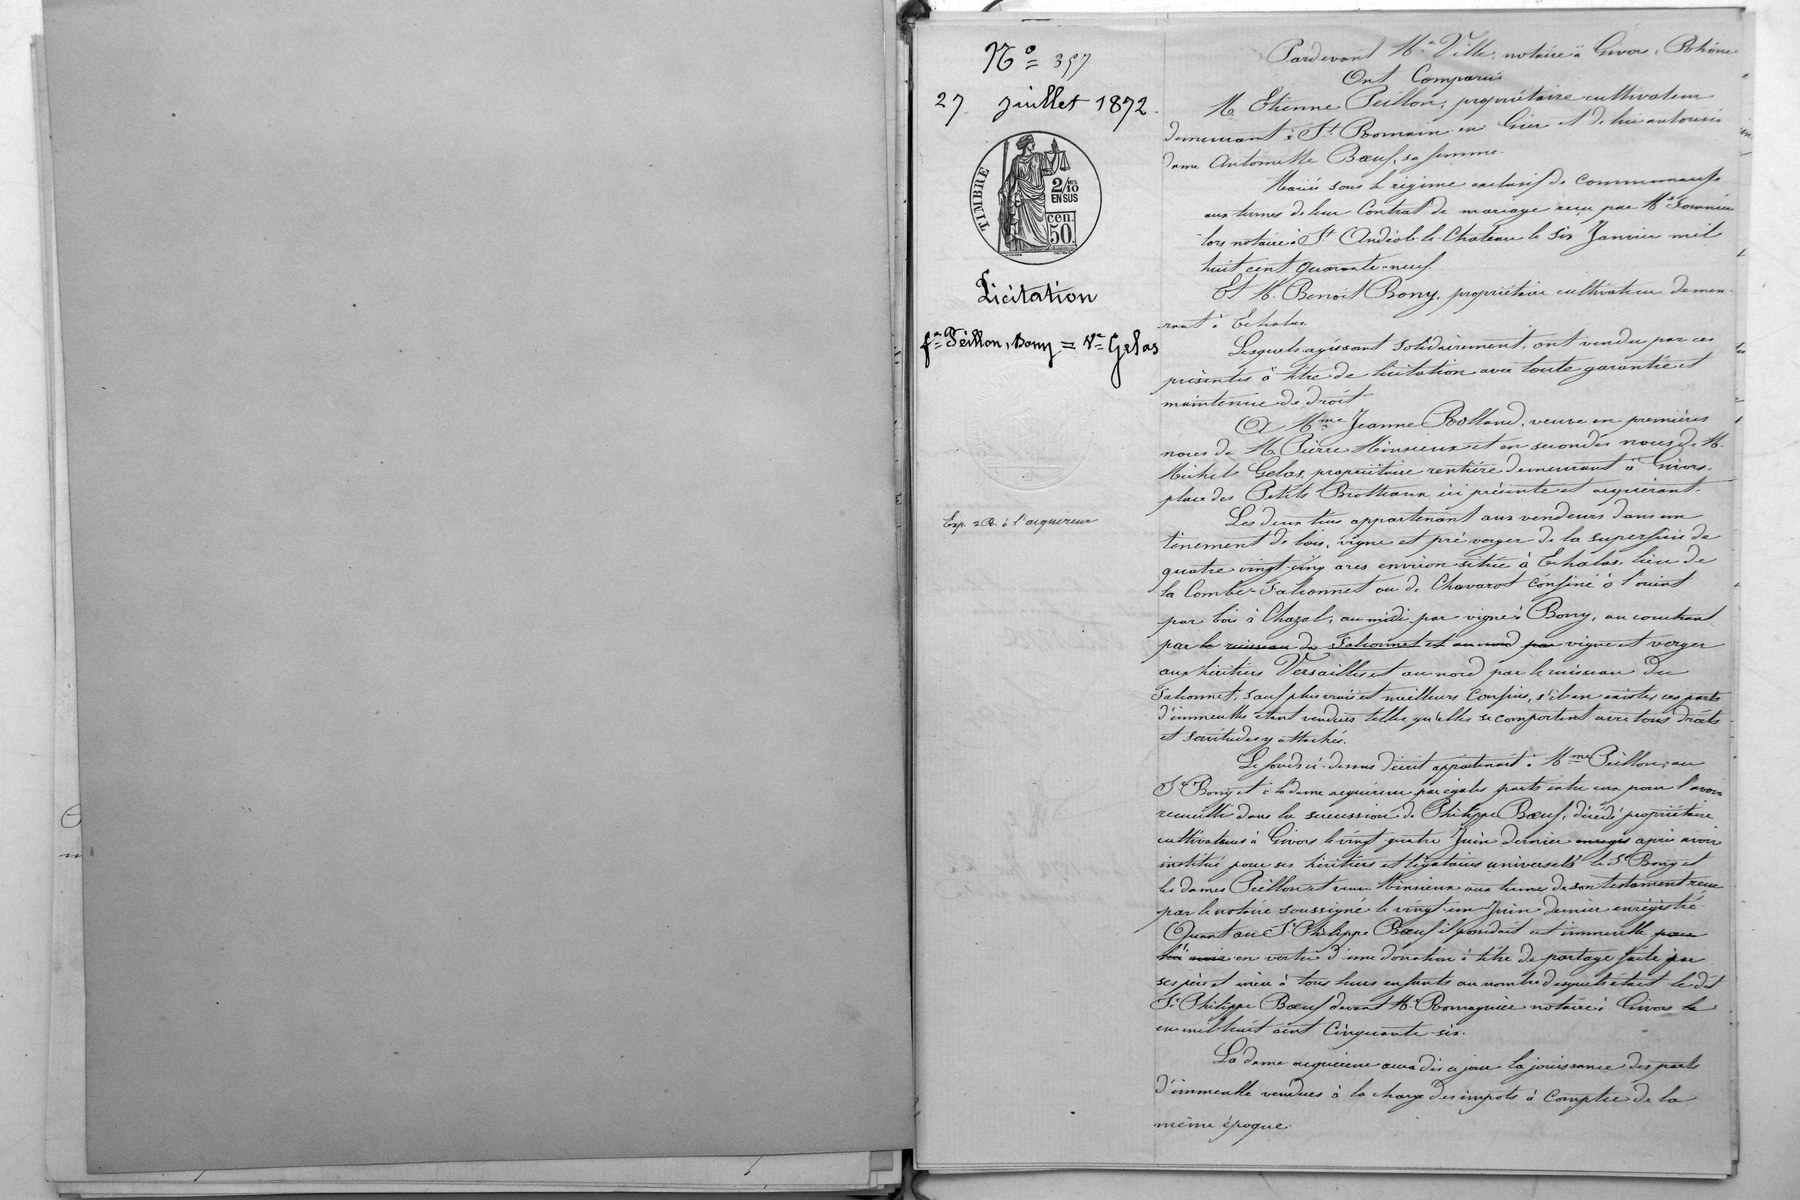 N° 357
27 juillet 1872.
TIMBRE
2/10
EN SUS
cen.
50.
Licitation
fe Peillon, Bony = Ve Gelas
Exp. 2 R. à l'acquéreur
Pardevant Me Ville, notaire à Givors, Rhône
Ont Comparu
M. Etienne Peillon, propriétaire cultivateur
demeurant à St Romain en Gier et de lui autorisée
dame Antoinette Bœuf, sa femme.
Mariés sous le régime exclusif de communauté
aux termes de leur Contrat de mariage reçu par Me Fournier
lors notaire à St Andéol-le-Chateau le six Janvier mil
huit cent quarante-neuf.
Et M. Benoit Bony, propriétaire cultivateur demeu-
rant à Echalas.
Lesquels agissant solidairement, ont vendu par ces
présentes à titre de licitation avec toute garantie et
maintenue de droit
A Mme Jeanne Rolland, veuve en premières
noces de M. Pierre Minsieux et en secondes noces de M.
Michel Gelas, propriétaire rentière demeurant à Givors,
place des Petits Brotteaux ici présente et acquérant.
Les deux tiers appartenant aux vendeurs dans un
tènement de bois, vigne et pré verger de la superficie de
quatre vingt cinq ares environ situé à Echalas, lieu de
la Combe-Falconnet ou de Chavarot confiné à l'orient
par bois à Chazal, au midi par vigne à Bony, au couchant
par le ruisseau du Falconnet et au nord par vigne et verger
aux héritiers Versailles et au nord par le ruisseau du
Falconnet, sauf plus vrais et meilleurs confins, s'il en existe, ces parts
d'immeuble étant vendues telles qu'elles se comportent avec tous droits
et servitudes y attachés.
Le fonds ci-dessus décrit appartenait à Mme Peillon, au
Sr Bony et à la dame acquéreur par égales parts entre eux pour l'avoir
recueilli dans la succession de Philippe Bœuf, décédé propriétaire
cultivateur à Givors le vingt quatre Juin dernier après avoir
institué pour ses héritiers et légataires universels le Sr Bony et
les dames Peillon et veuve Minsieux aux termes de son testament reçu
par le notaire soussigné le vingt-un Juin dernier enregistré.
Quant au Sr Philippe Bœuf il possédait cet immeuble pour
en vertu d'une donation à titre de partage faite par
ses père et mère à tous leurs enfants au nombre desquels était le dit
Sr Philippe Bœuf devant Me Romagnier notaire à Givors le
en mil huit cent Cinquante-six.
La dame acquéreur aura dès ce jour la jouissance des parts
d'immeuble vendues à la charge des impôts à compter de la
même époque.